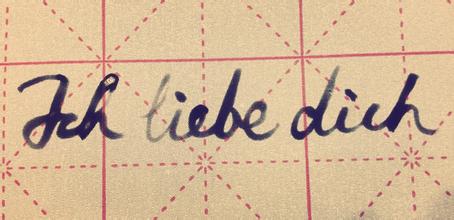 Ich liebe dich